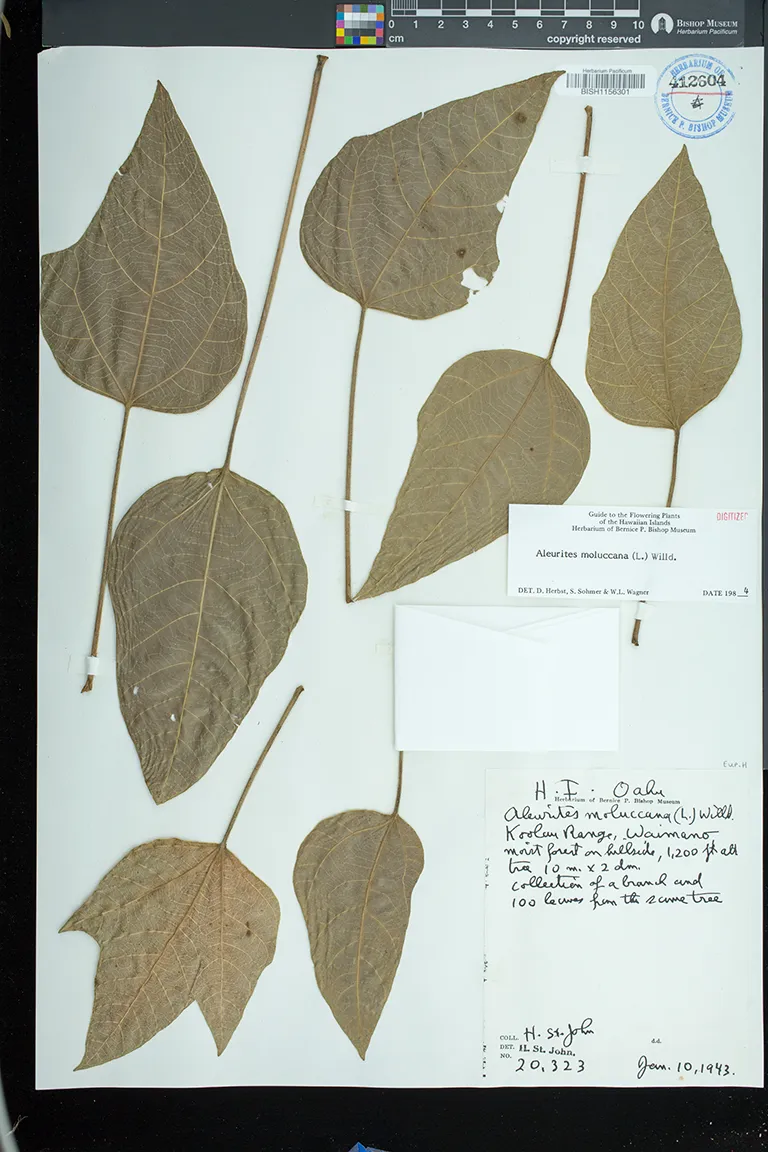 0 1 2 3 4 5 6 7 8 9 10
cm
copyright reserved
BISHOP MUSEUM
Herbarium Pacificum
Herbarium Pacificum
BISH1156301
HERBARIUM OF
412604
BERNICE P. BISHOP MUSEUM
Guide to the Flowering Plants
of the Hawaiian Islands
Herbarium of Bernice P. Bishop Museum
DIGITIZED
Aleurites moluccana (L.) Willd.
DET. D. Herbst, S. Sohmer & W.L. Wagner DATE 198 4
Eup. H
H. I. Oahu
Herbarium of Bernice P. Bishop Museum
Aleurites moluccana (L.) Willd.
Koolau Range, Waimano
moist forest on hillside, 1,200 ft alt
tree 10 m. x 2 dm.
collection of a branch and
100 leaves from the same tree
COLL. H. St. John
DET. H. St. John,
NO. 20,323 Jan. 10, 1943.